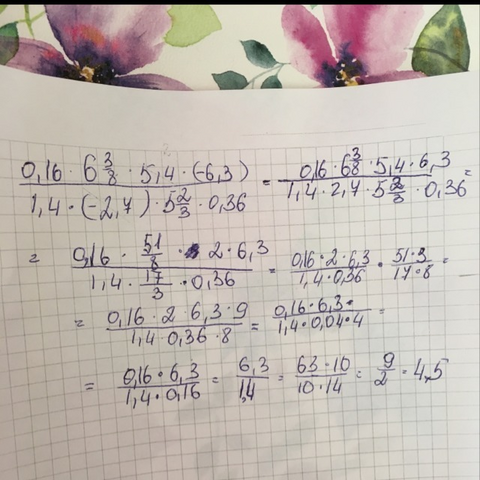 0,16 · 6 3/8 · 5,4 · (-6,3) / 1,4 · (-2,7) · 5 2/3 · 0,36 = 0,16 · 6 3/8 · 5,4 · 6,3 / 1,4 · 2,7 · 5 2/3 · 0,36 =
= 0,16 · 51/8 · 2 · 6,3 / 1,4 · 17/3 · 0,36 = 0,16 · 2 · 6,3 / 1,4 · 0,36 · 51 · 3 / 17 · 8 =
= 0,16 · 2 · 6,3 · 9 / 1,4 · 0,36 · 8 = 0,16 · 6,3 · / 1,4 · 0,04 · 4 =
= 0,16 · 6,3 / 1,4 · 0,16 = 6,3 / 1,4 = 63 · 10 / 10 · 14 = 9/2 = 4,5